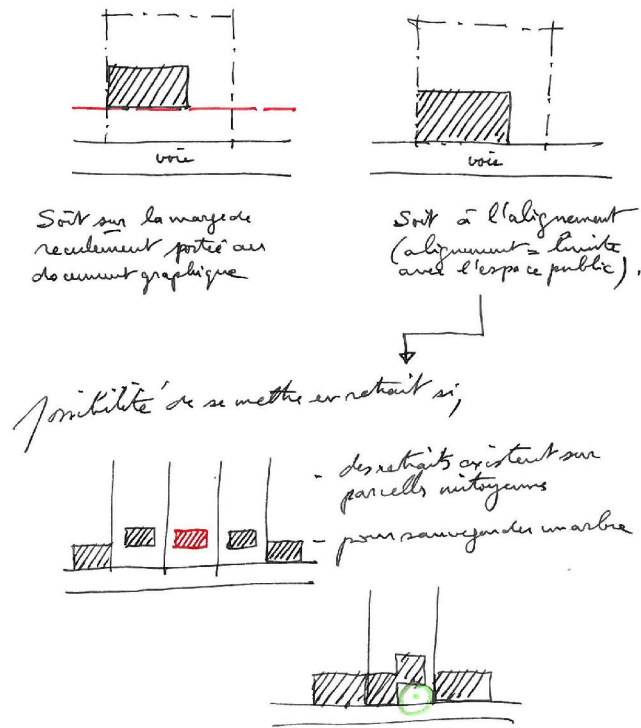 voie
Soit sur la marge de
reculement portée au
document graphique
voie
Soit à l'alignement
(alignement = limite
avec l'espace public).
possibilité de se mettre en retrait si,
- des retraits existent sur
parcelles mitoyennes
- pour sauvegarder un arbre